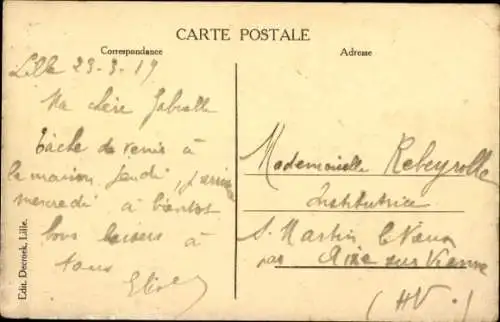 CARTE POSTALE
Correspondance
Adresse
Lille 23-3-19
Ma chère Gabrielle
tâche de venir à
la maison jeudi, j'arrive
mercredi à bientôt
bons baisers à
tous
Mademoiselle Rebeyrolle
Institutrice
St Martin le Vieux
par Aixe sur Vienne
(HV.)
Edit. Decroek, Lille.